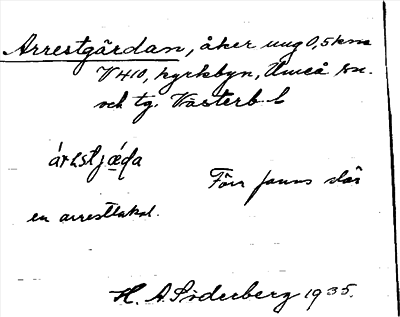 Arrestgärdan, åker ung 0,5 km
V 410, kyrkbyn, Umeå sn.
och tg. Västerb. l
Förr fanns där
en arrestlokal.
H. A. Söderberg 1935.